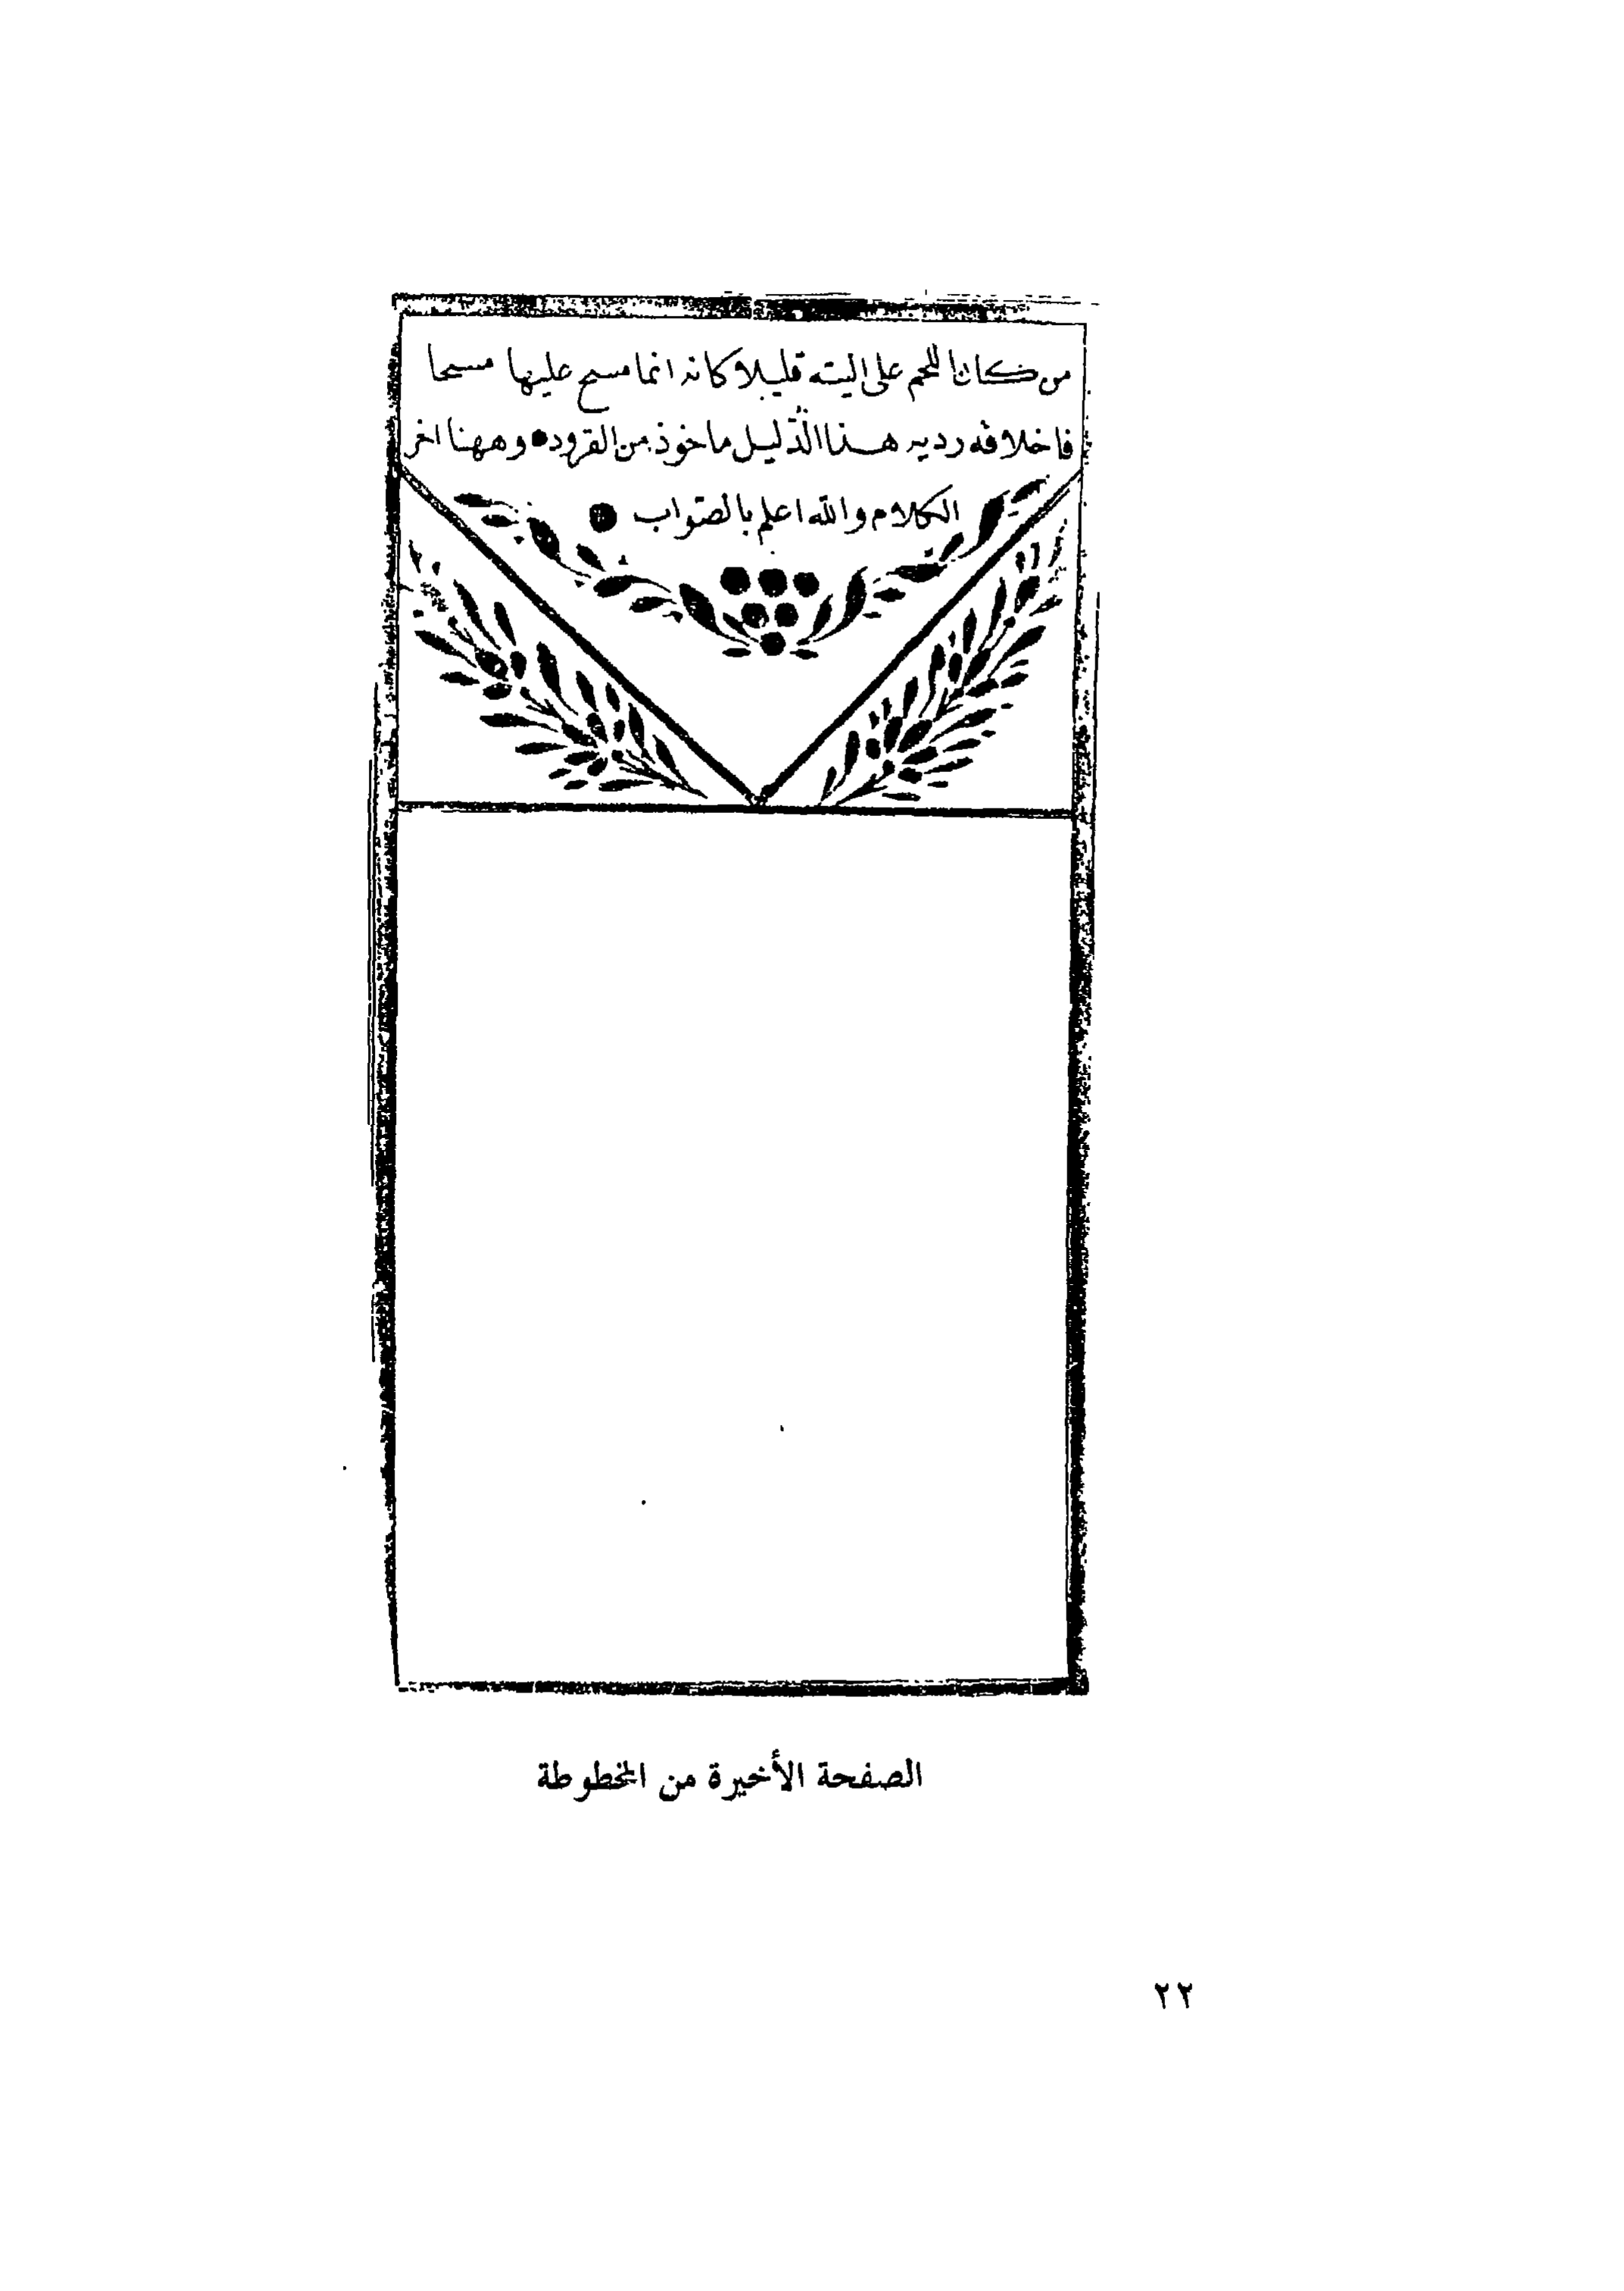 من كان اللحم على اليته قليلا وكانه انما مسح عليها مسحا
فاخلاقه رديه هذا الدّليل ماخوذ من القرود • وههنا اخر
الكلام والله اعلم بالصّواب
الصفحة الأخيرة من المخطوطة
٢٢